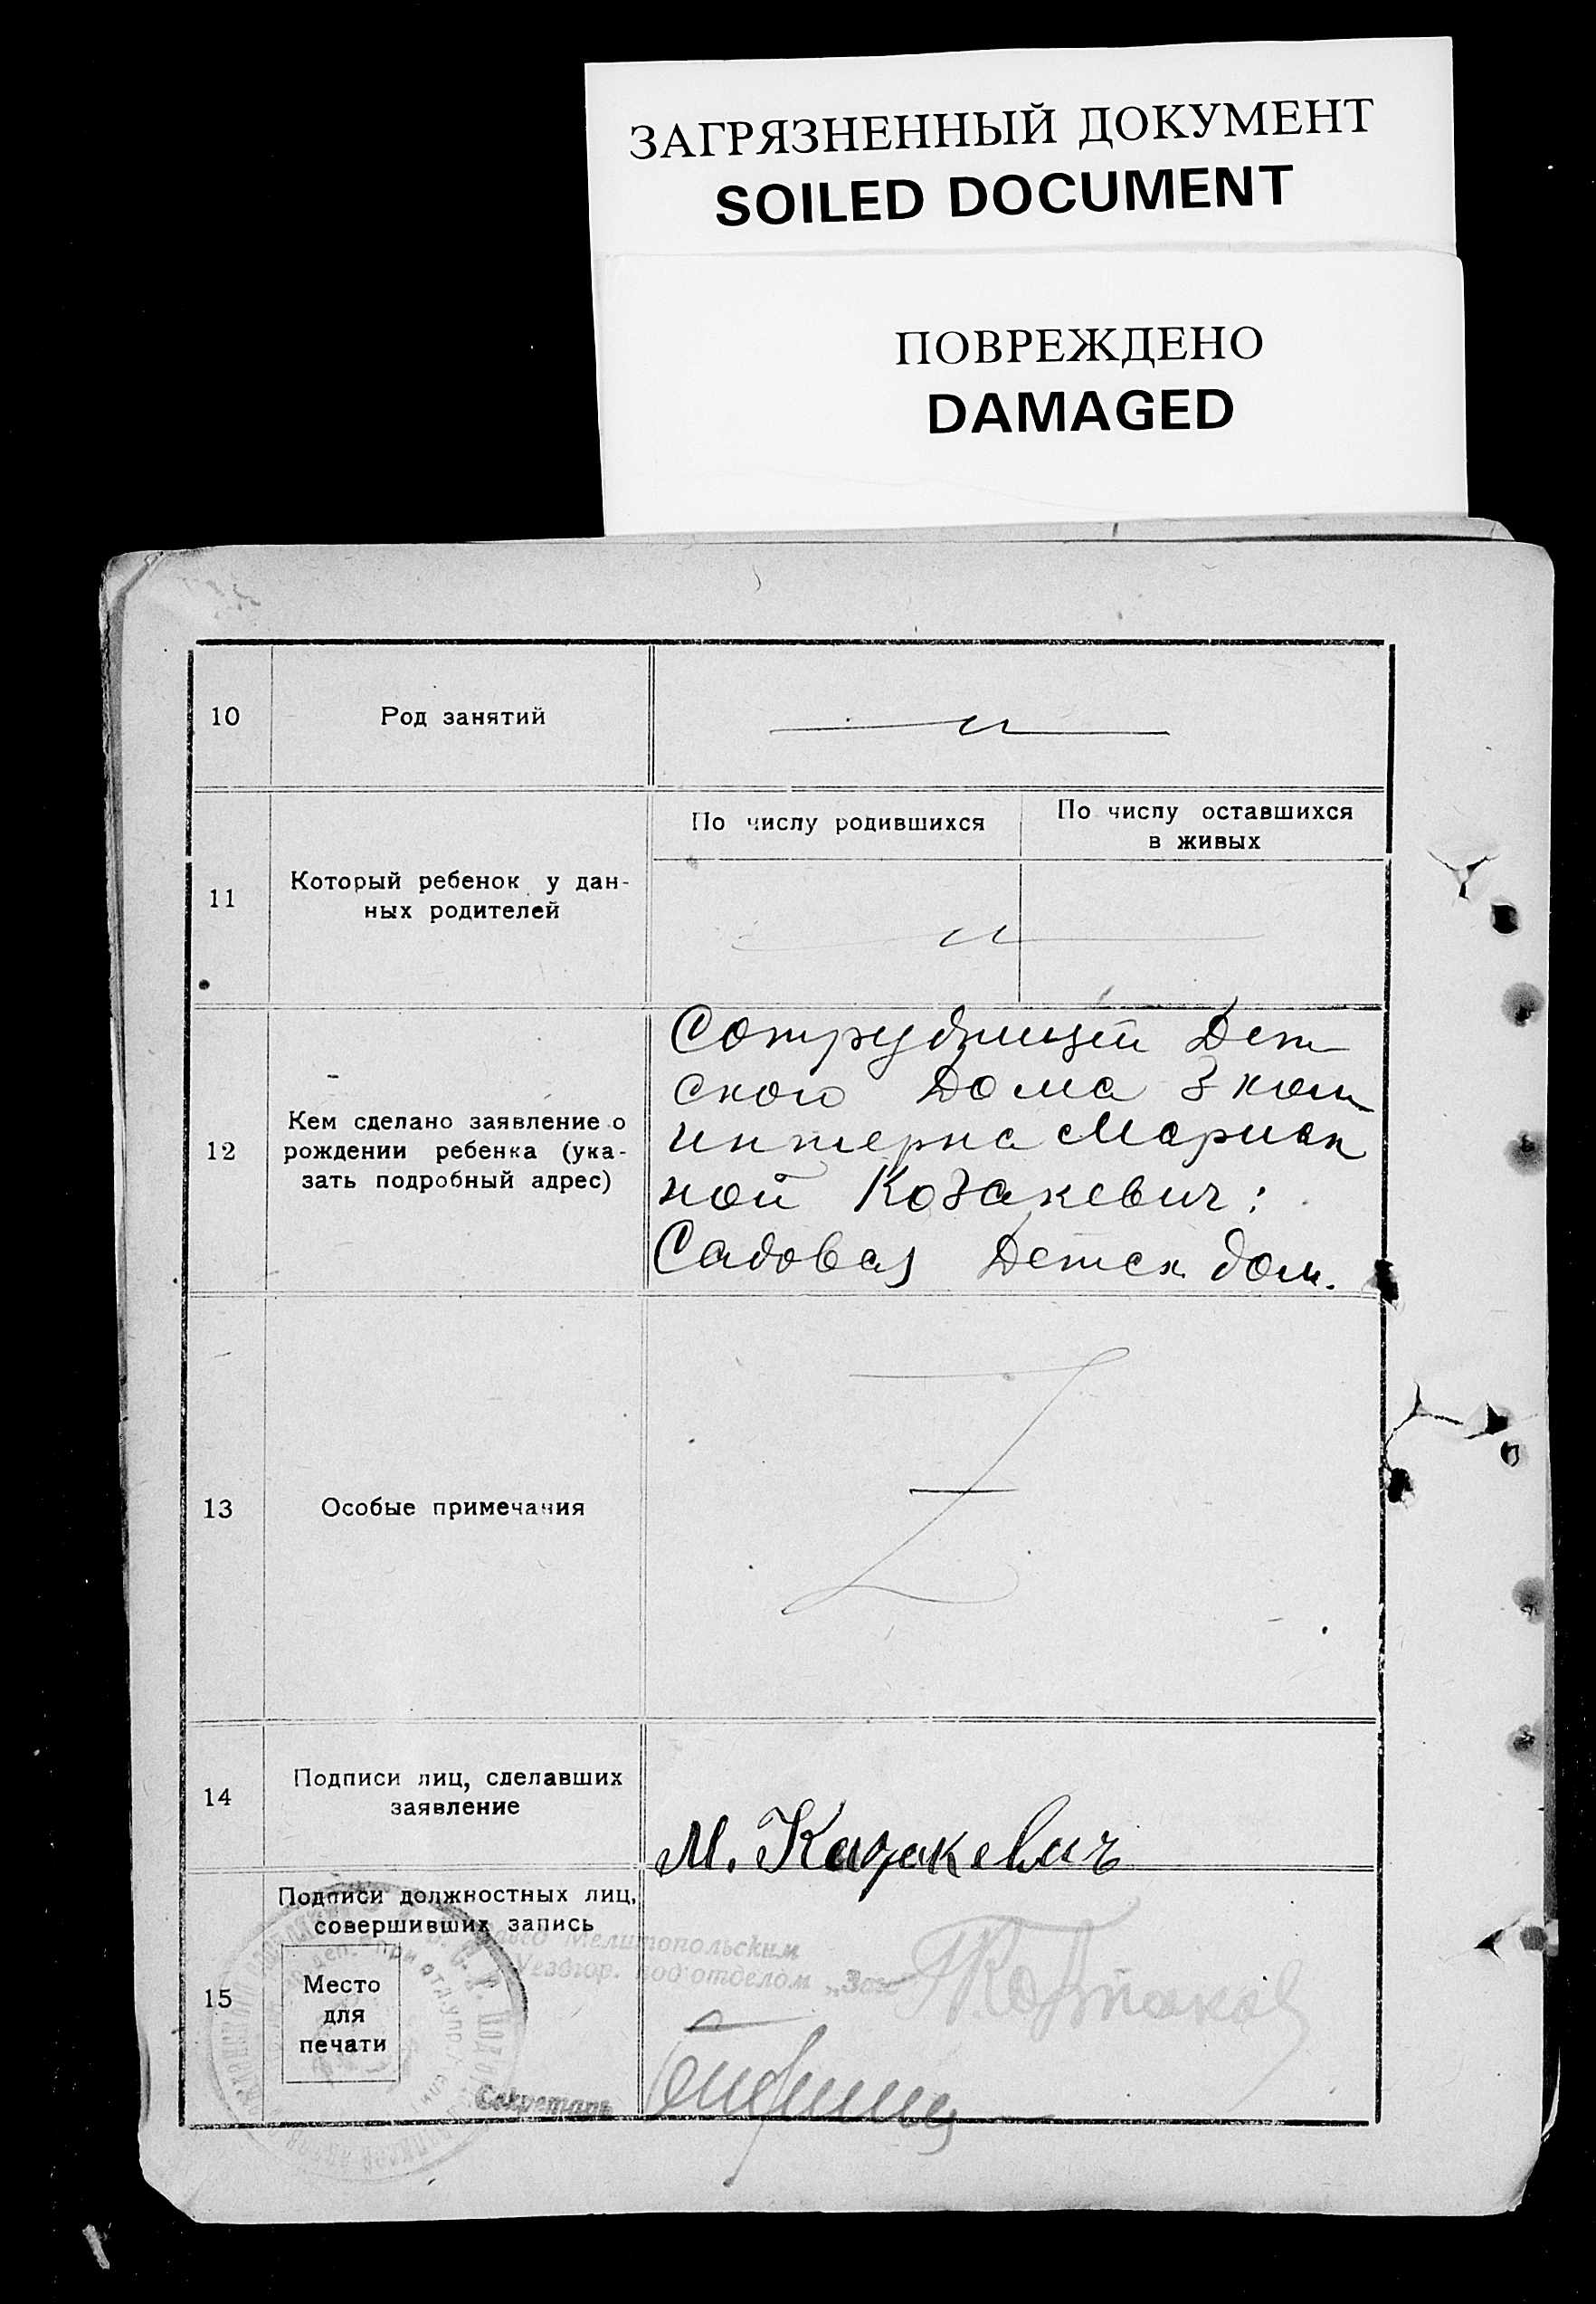 ЗАГРЯЗНЕННЫЙ ДОКУМЕНТ
SOILED DOCUMENT
ПОВРЕЖДЕНО
DAMAGED
10
Род занятий
— „ —
11
Который ребенок у дан-
ных родителей
По числу родившихся
По числу оставшихся
в живых
— „ —
12
Кем сделано заявление о
рождении ребенка (ука-
зать подробный адрес)
Сотрудницей Дет
ского Дома 3 ком
интерна Мариан
ной Козакевич:
Садовая Детск дом.
13
Особые примечания
14
Подписи лиц, сделавших
заявление
М. Казакевич
15
Подписи должностных лиц,
совершивших запись
Место
для
печати
Мелитопольским
Уездгор. подотделом „Загс
Секретарь